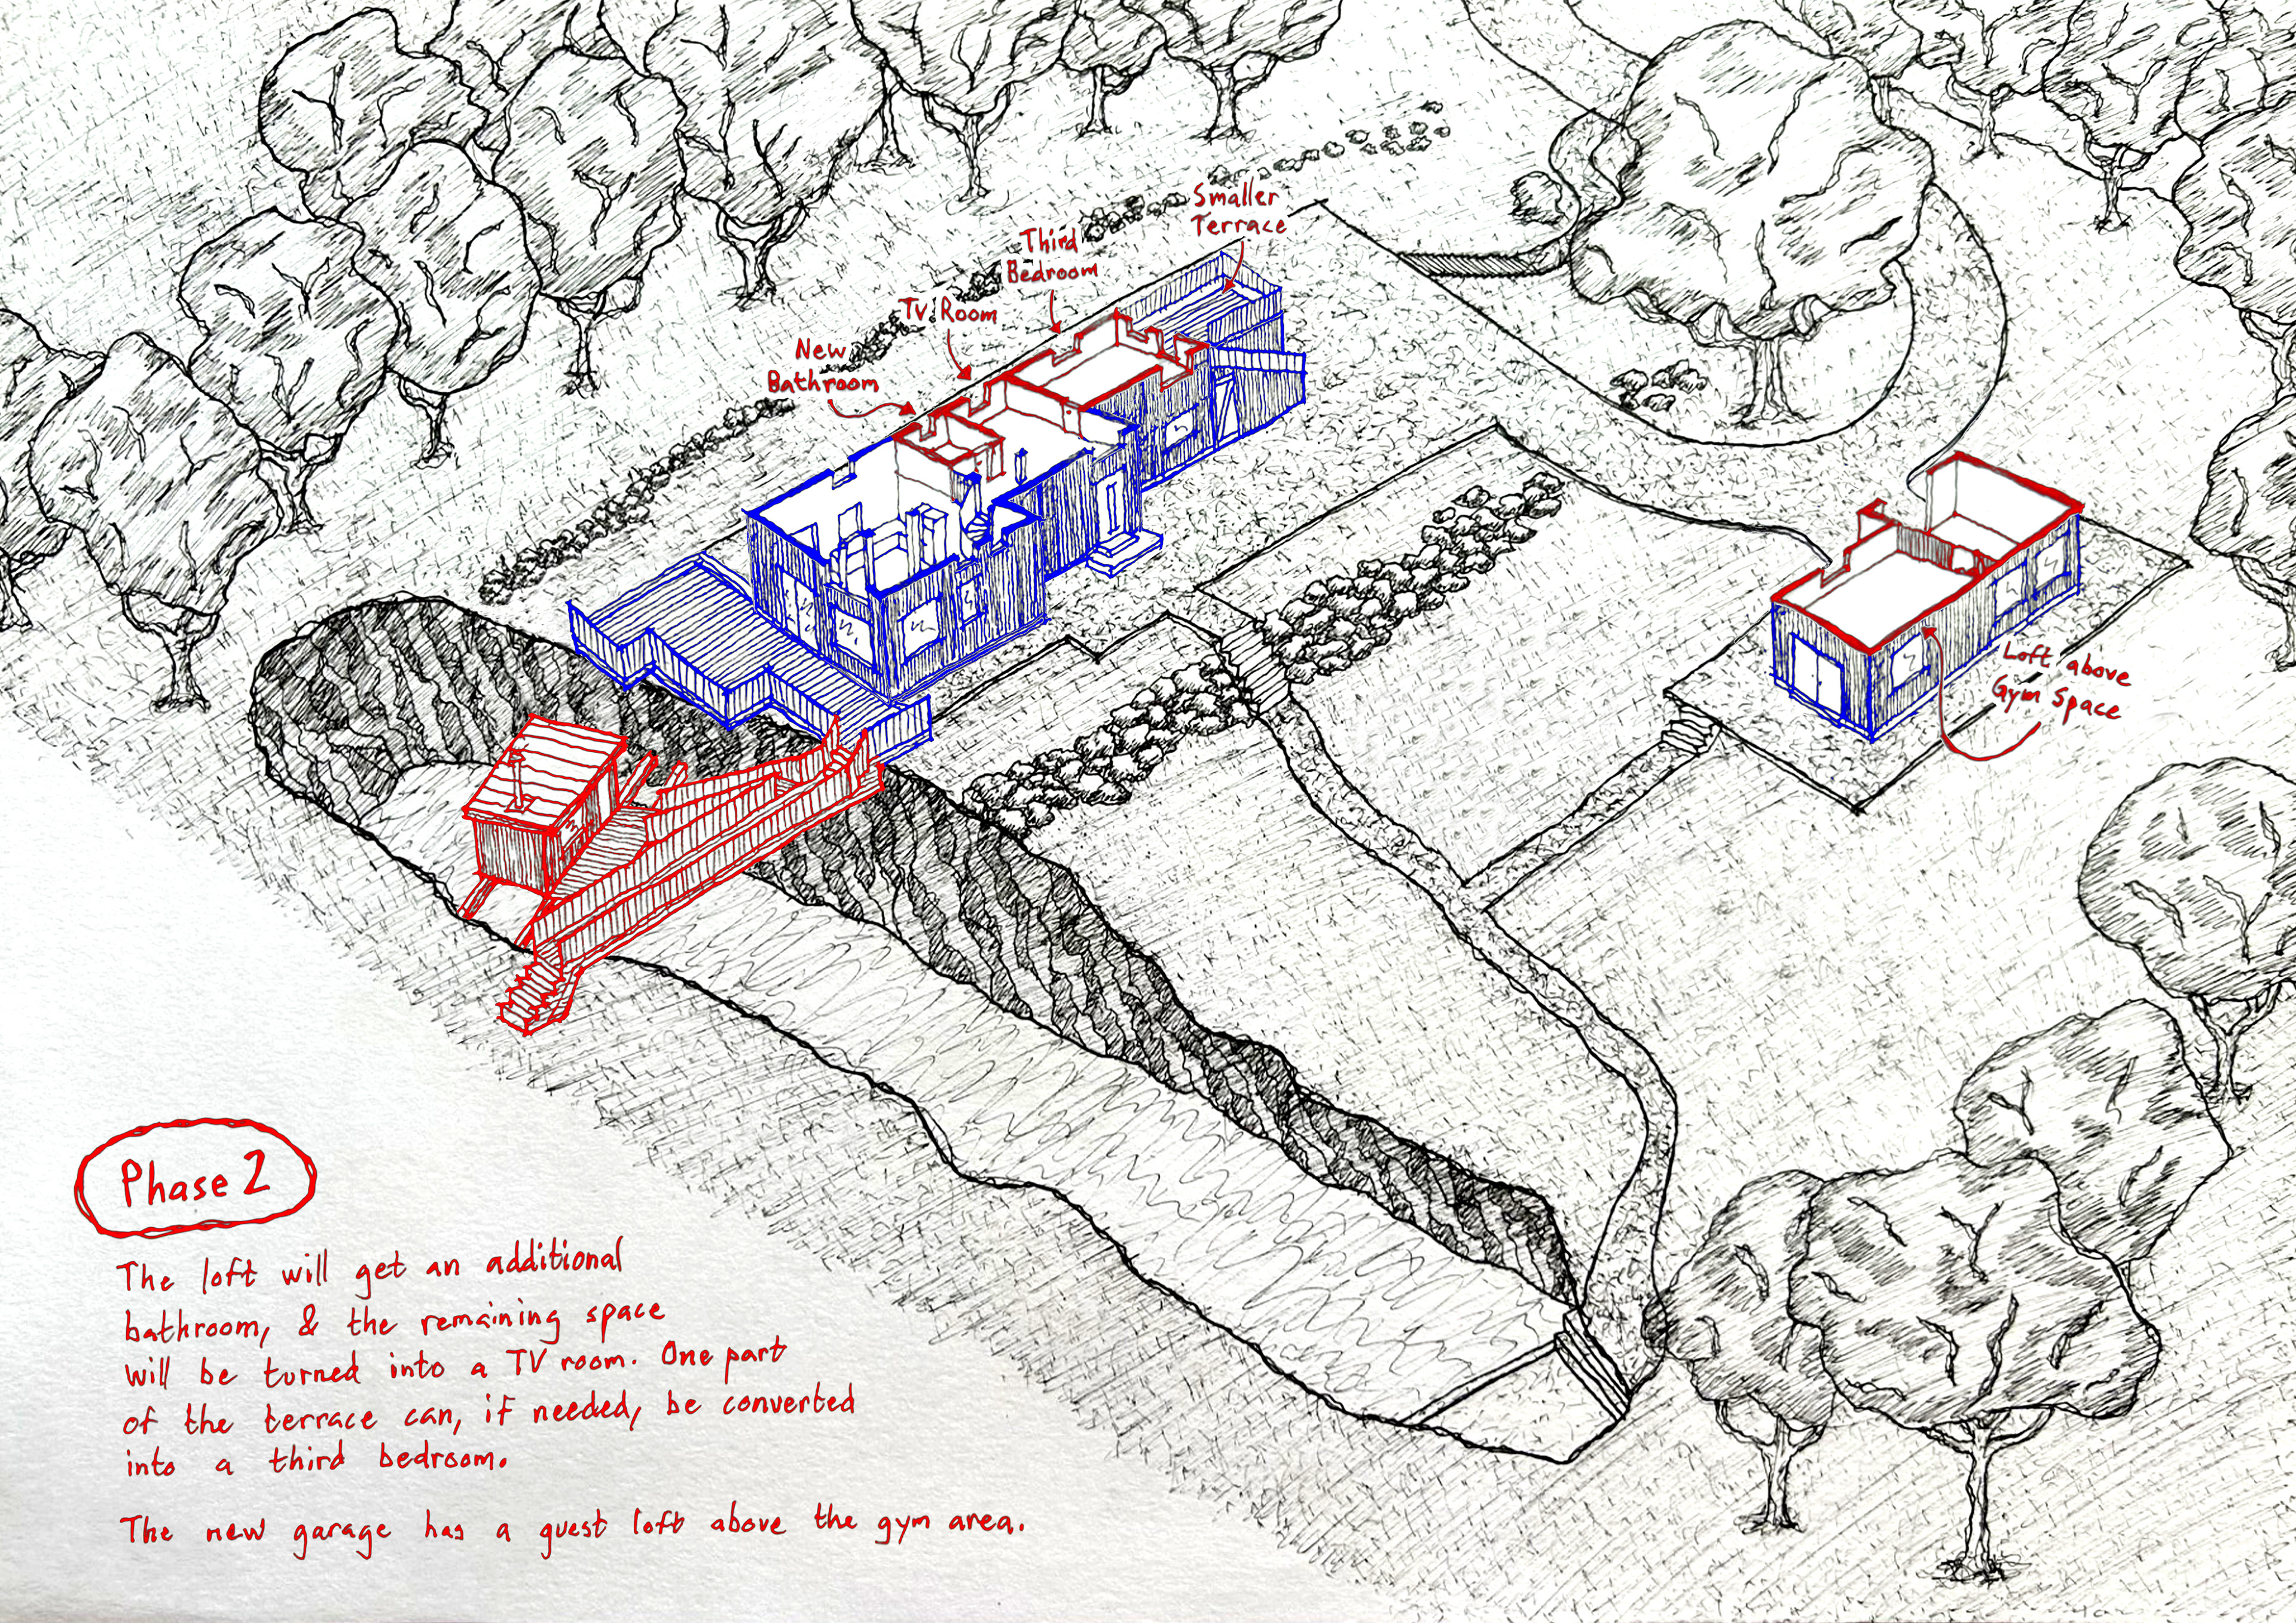 Smaller
Terrace
Third
Bedroom
TV Room
New
Bathroom
Loft above
Gym Space
Phase 2
The loft will get an additional
bathroom, & the remaining space
will be turned into a TV room. One part
of the terrace can, if needed, be converted
into a third bedroom.
The new garage has a guest loft above the gym area.